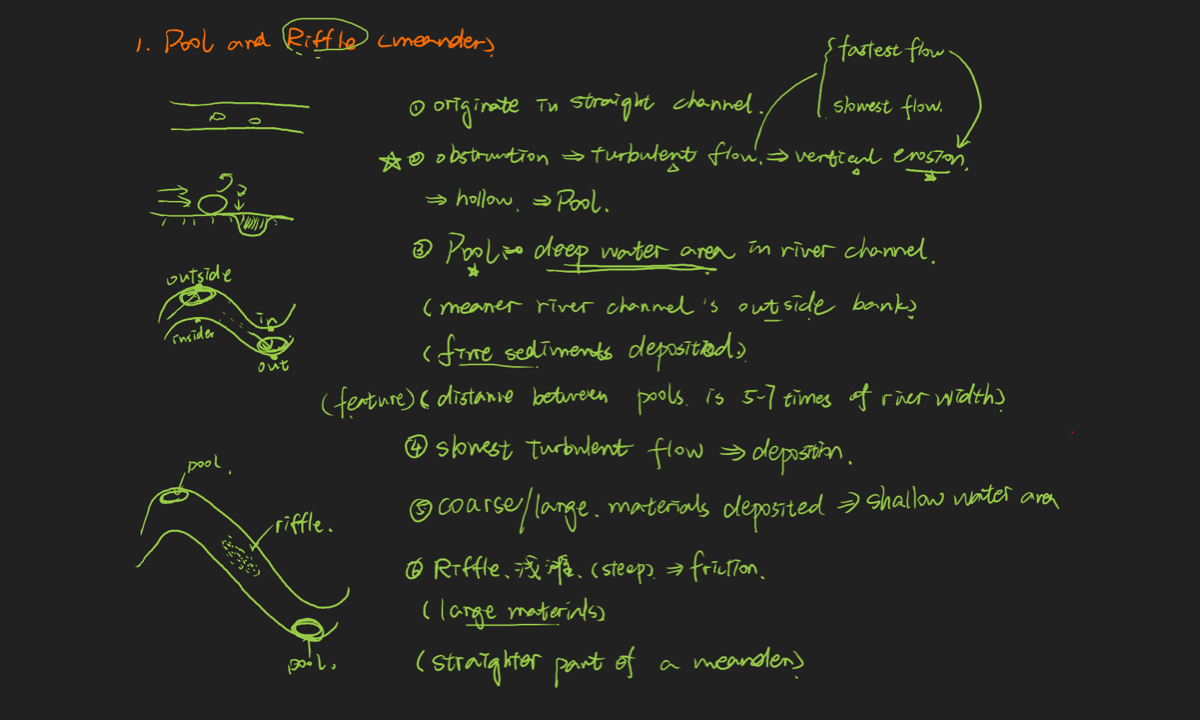 1. Pool and Riffle (meander)
{ fastest flow
slowest flow.
① originate in straight channel.
☆② obstruction ⇒ turbulent flow. ⇒ vertical erosion.
⇒ hollow. ⇒ Pool.
③ Pool:- deep water area in river channel.
outside
(meaner river channel's outside bank)
in
insider
out
(fine sediments deposited)
(feature) (distance between pools is 5-7 times of river width)
④ slowest turbulent flow ⇒ deposition.
pool.
⑤ coarse/large. materials deposited ⇒ shallow water area
riffle.
⑥ Riffle. 浅滩. (steep) ⇒ friction.
(large materials)
pool.
(straighter part of a meander)